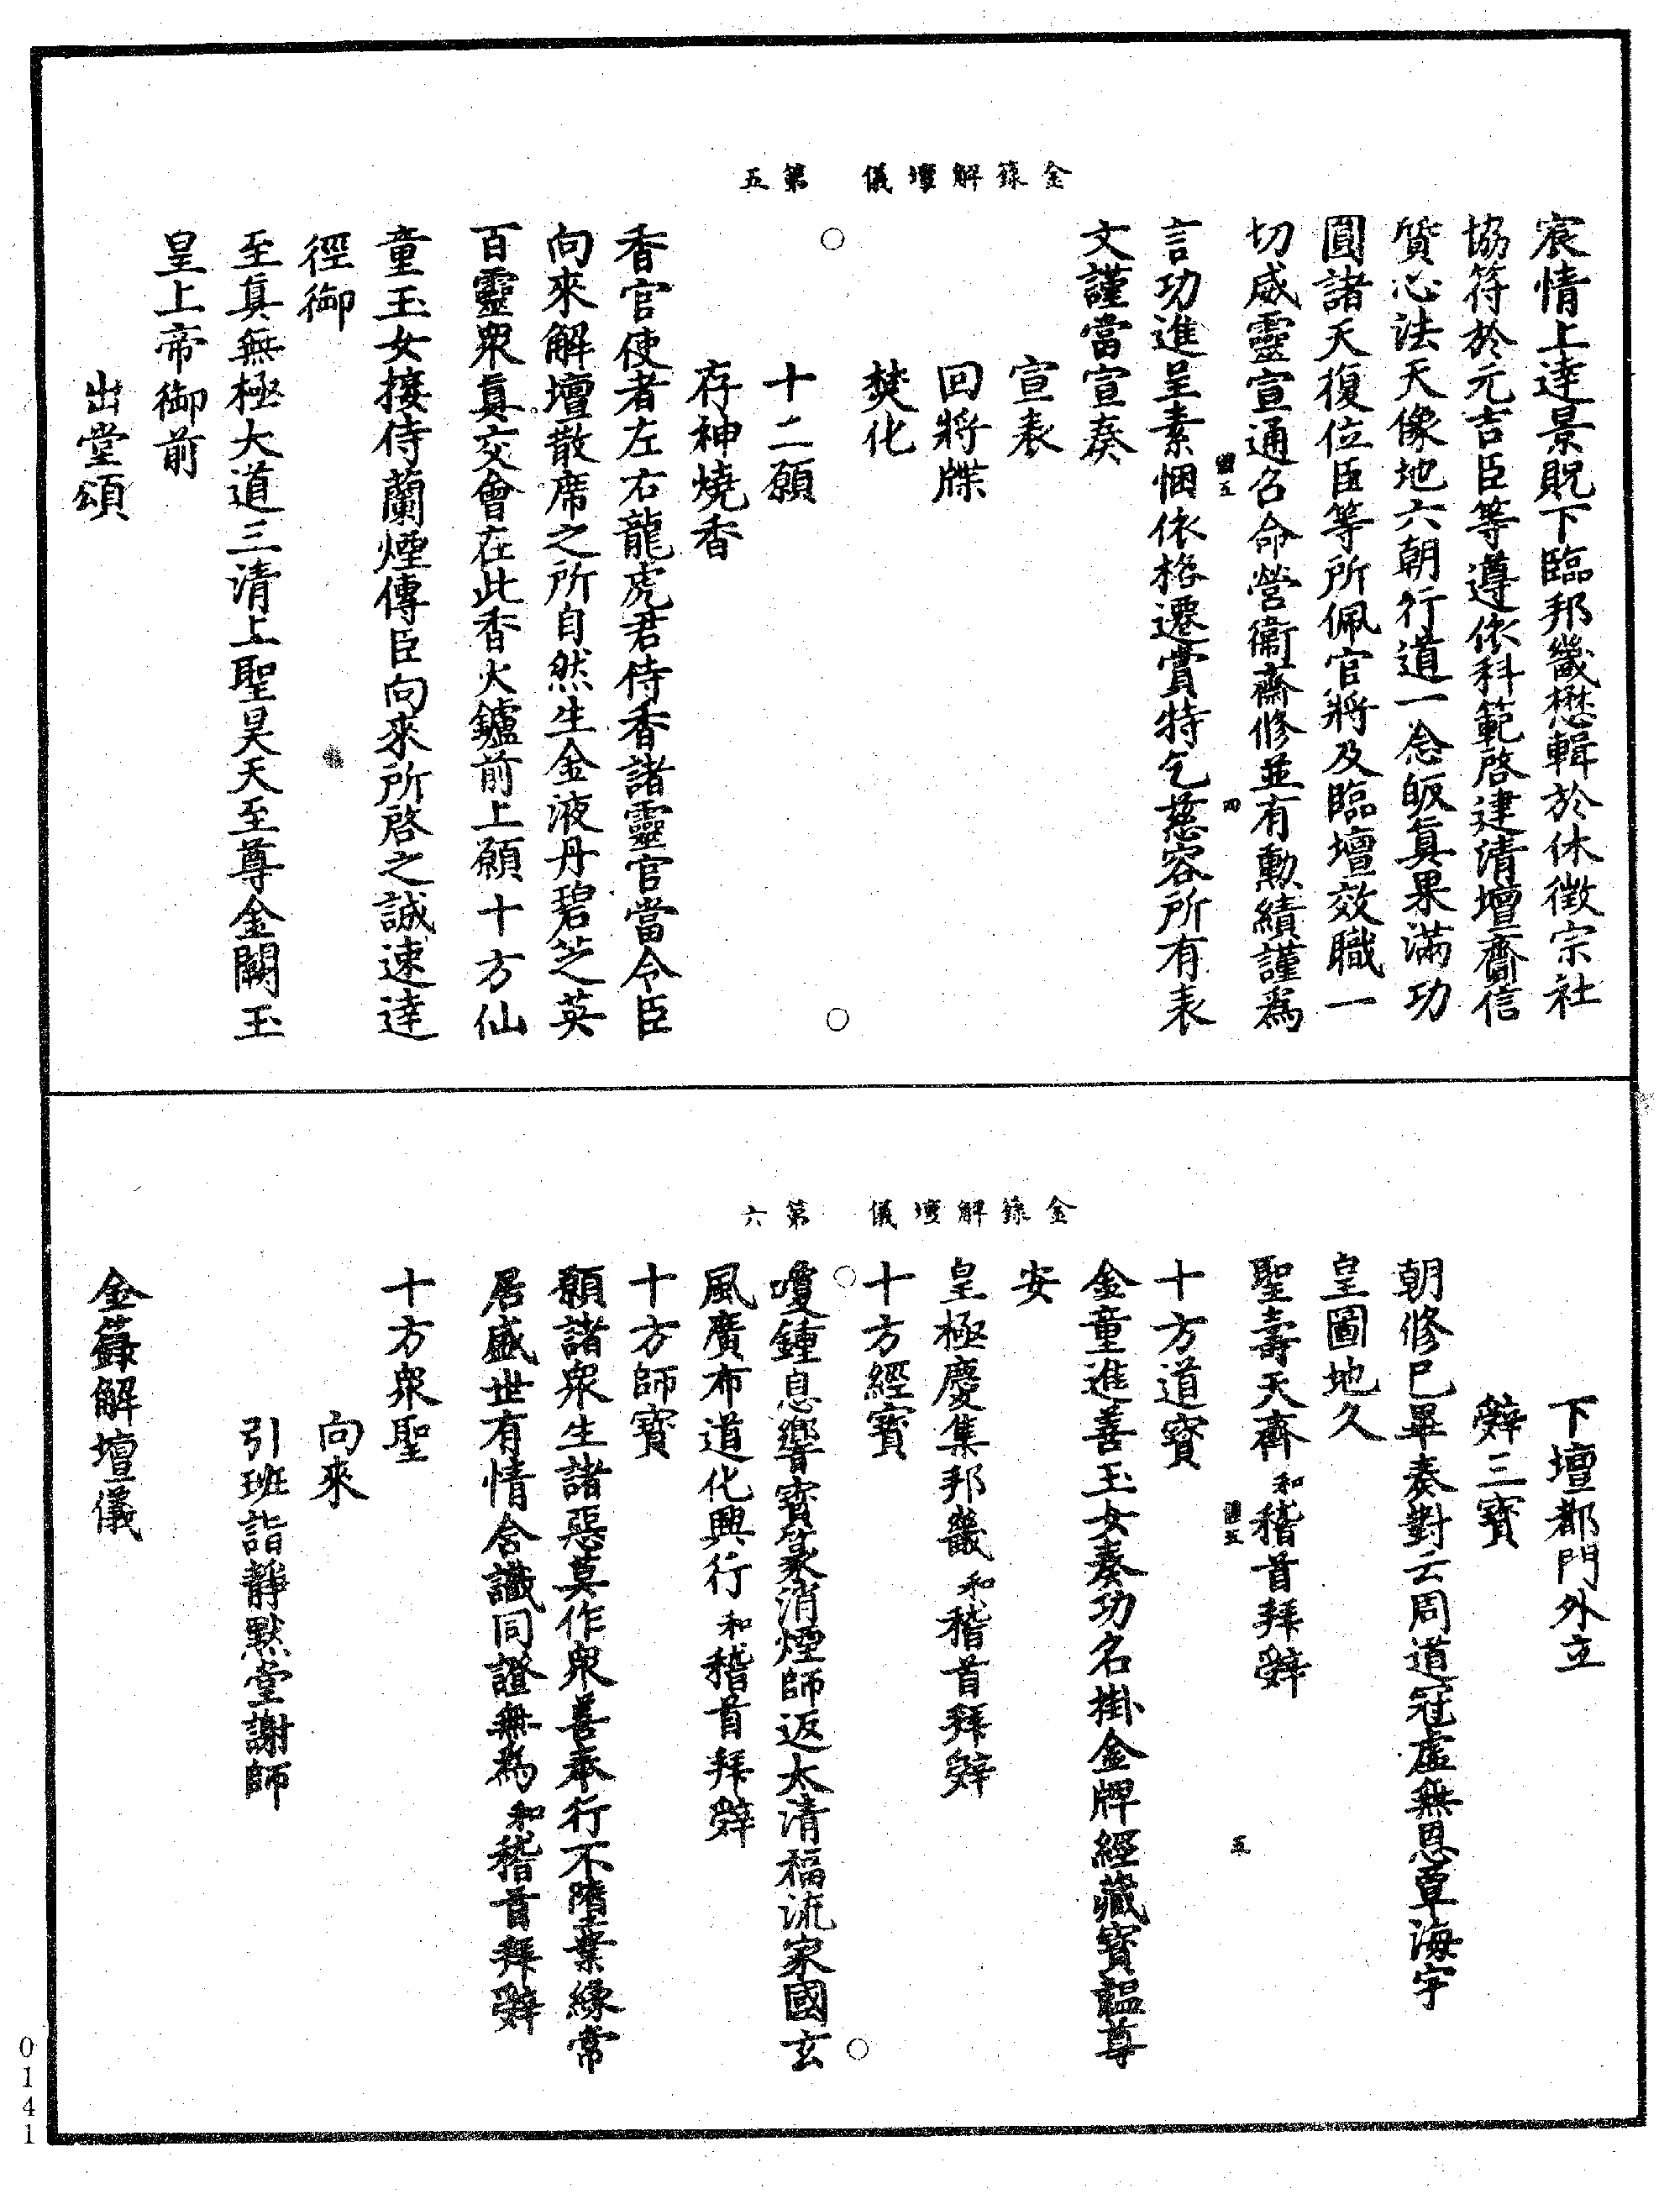 金籙解壇儀　第五
宸情上達景貺下臨邦畿懋輯於休徵宗社
協符於元吉臣等遵依科範啓建清壇齎信
質心法天像地六朝行道一念皈眞果滿功
圓諸天復位臣等所佩官將及臨壇效職一
切威靈宣通名命營衛齋修並有勳績謹爲
言功進呈素悃依格遷賞特乞慈容所有表
文謹當宣奏
宣表
回將牒
焚化
十二願
存神燒香
香官使者左右龍虎君侍香諸靈官當令臣
向來解壇散席之所自然生金液丹碧芝英
百靈衆眞交會在此香火鑪前上願十方仙
童玉女接侍蘭煙傳臣向來所啓之誠速達
徑御
至眞無極大道三清上聖昊天至尊金闕玉
皇上帝御前
出堂頌
金籙解壇儀　第六
下壇都門外立
辭三寶
朝修已畢奏對云周道冠虛無恩覃海宇
皇圖地久
聖壽天齊和稽首拜辭
十方道寶
金童進善玉女奏功名掛金牌經藏寶韞尊
安
皇極慶集邦畿和稽首拜辭
十方經寶
瓊鍾息響寶篆消煙師返太清福流家國玄
風廣布道化興行和稽首拜辭
十方師寶
願諸衆生諸惡莫作衆善奉行不隨業緣常
居盛世有情含識同證無爲和稽首拜辭
十方衆聖
向來
引班詣靜默堂謝師
金籙解壇儀
0141